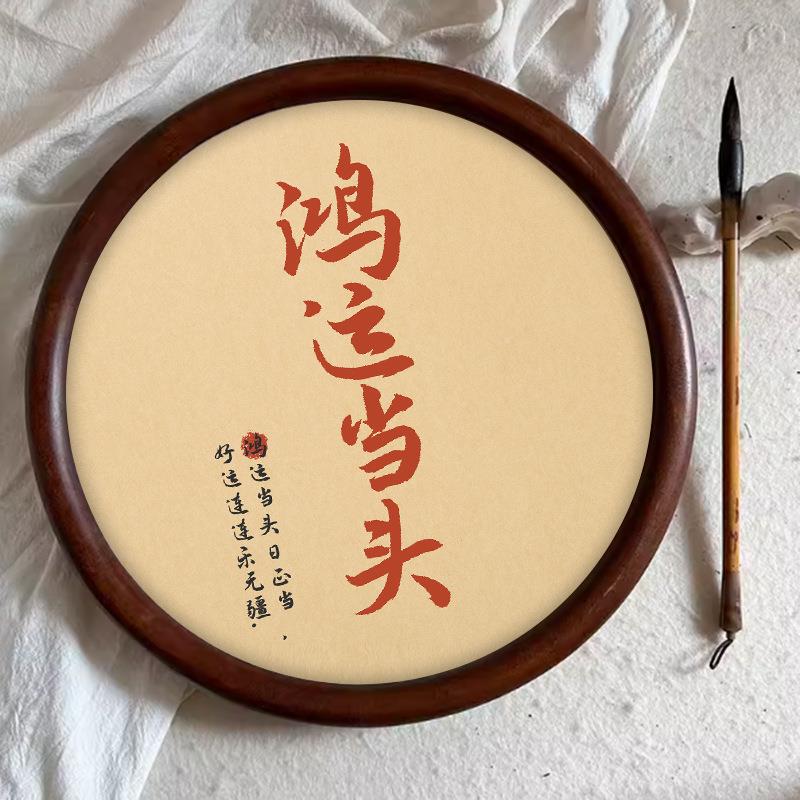 鸿运当头
鸿运当头日正当，
好运连连乐无疆。